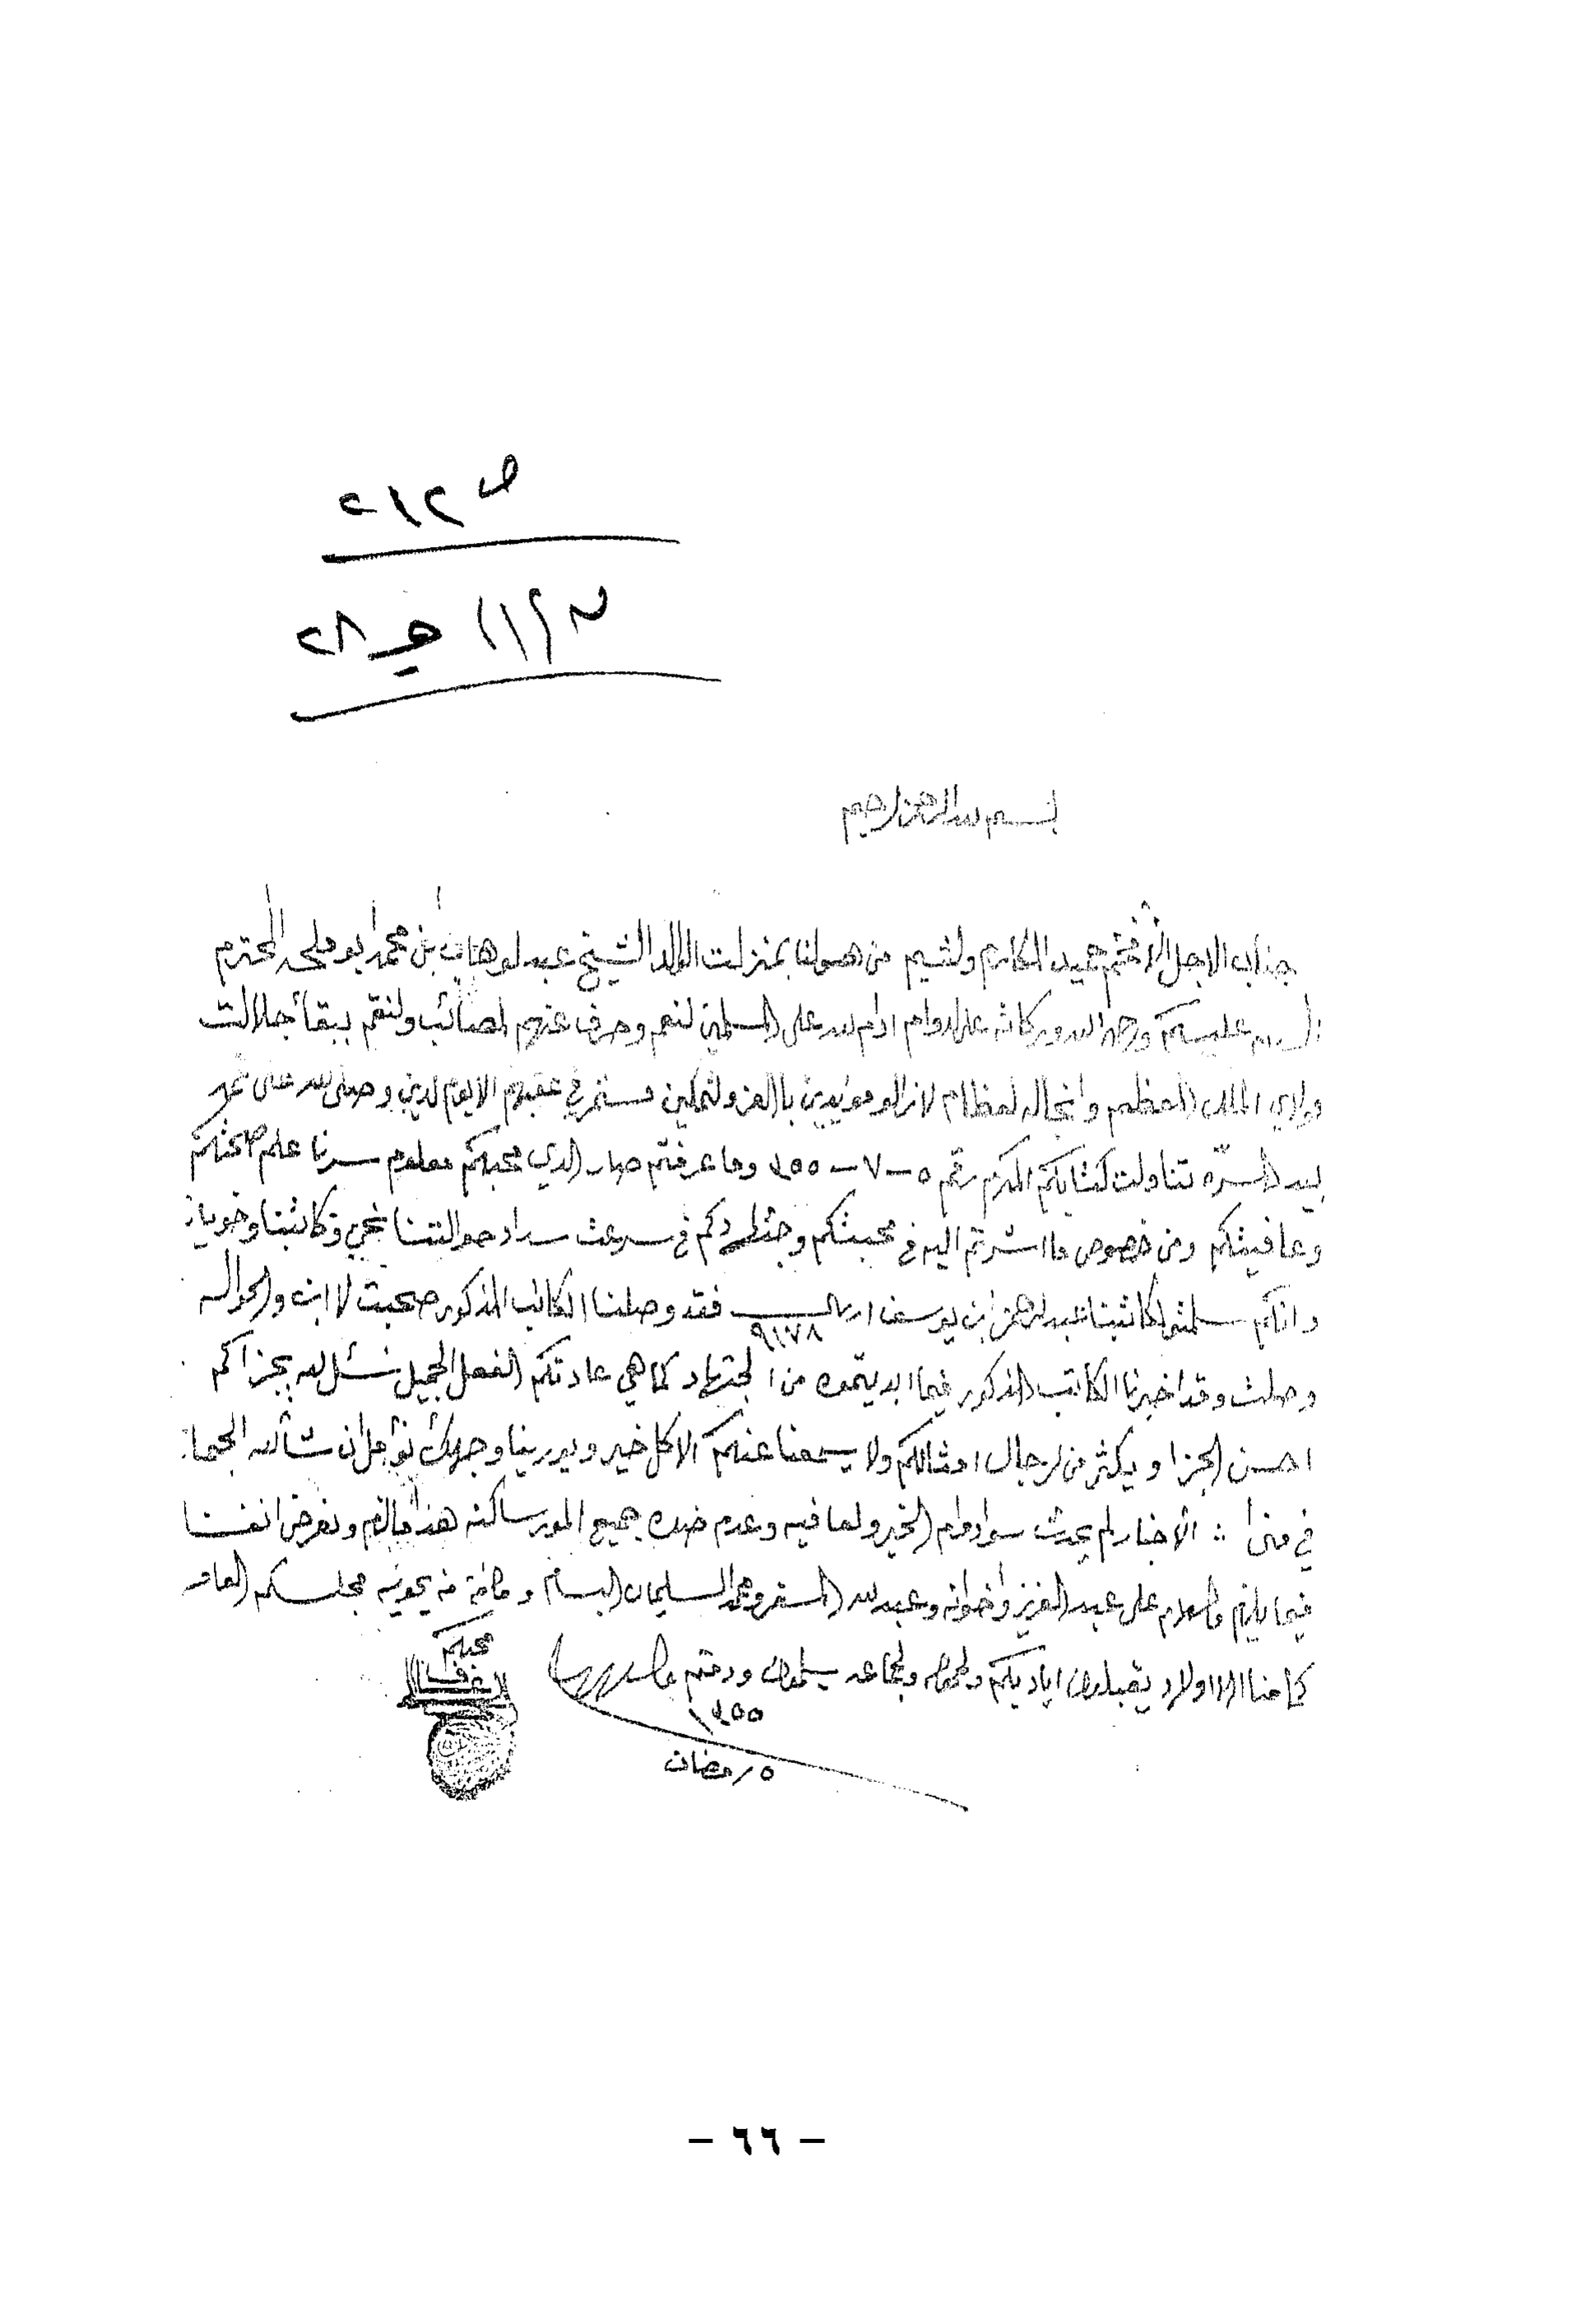 ص ٢١٢
بسم الله الرحمن الرحيم
جناب الاجل الافخم حميد المكارم ولشيم من هو لنا بمنزلت الوالد الشيخ عبد لوهاب بن محمد ابو ملحه المحترم
السلام عليكم ورحمة الله وبركاته على لدوام ادام لله على المسلمين لنعم وصرف عنهم لمصائب ولنقم ببقأ جلالت
مولاي الملك المعظم وانجاله لعظام لازالو مؤيدين باالعز ولتمكين مستمر في عقبهم الا يوم لدين وصلى لله على محمد
بيد المسرّه تناولت كتابكم المكرم رقم ٥ - ٧ - ٥٥ وما عرفتم صار لدي محبكم معلوم سرنا علم صحتكم
وعافيتكم ومن خصوص ما اشرتم اليه في محبتكم وجتهادكم في سرعت سداد حوالتنا
وانكم سلمتو لكاتبنا عبد لرحمن ابن يوسف اريال فقد وصلنا الكاتب المذكور صحبت لابن والحواله
٩١٧٨
وصلت وقد اخبرنا الكاتب المذكور فيما ابديتموه من الجتهاد كما هي عادتكم الفعل الجميل نسئل لله يجزاكم
احسن الجزا ويكثر من لرجال امثالكم ولا يسمعنا عنكم الا كل خير ويرينا وجهك نؤامل ان شأ لله
في منى : الأخبار لم يحدث سوا دوام الخير ولعافيه وعدم ضده جميع المور ساكنه هذا مالزم ونعرض انفسنا
فيما يلزم ولسلام على عبد العزيز واخوانه وعبد لله المسفر ومحمد السليمان البسام وكافة من يحويه مجلسكم العامر
كما منا الاولاد يقبلون اياديكم ولخويا ولجماعه يسلمون ودمتم
محبكم
١٣٥٥
٥ رمضان
- ٦٦ -